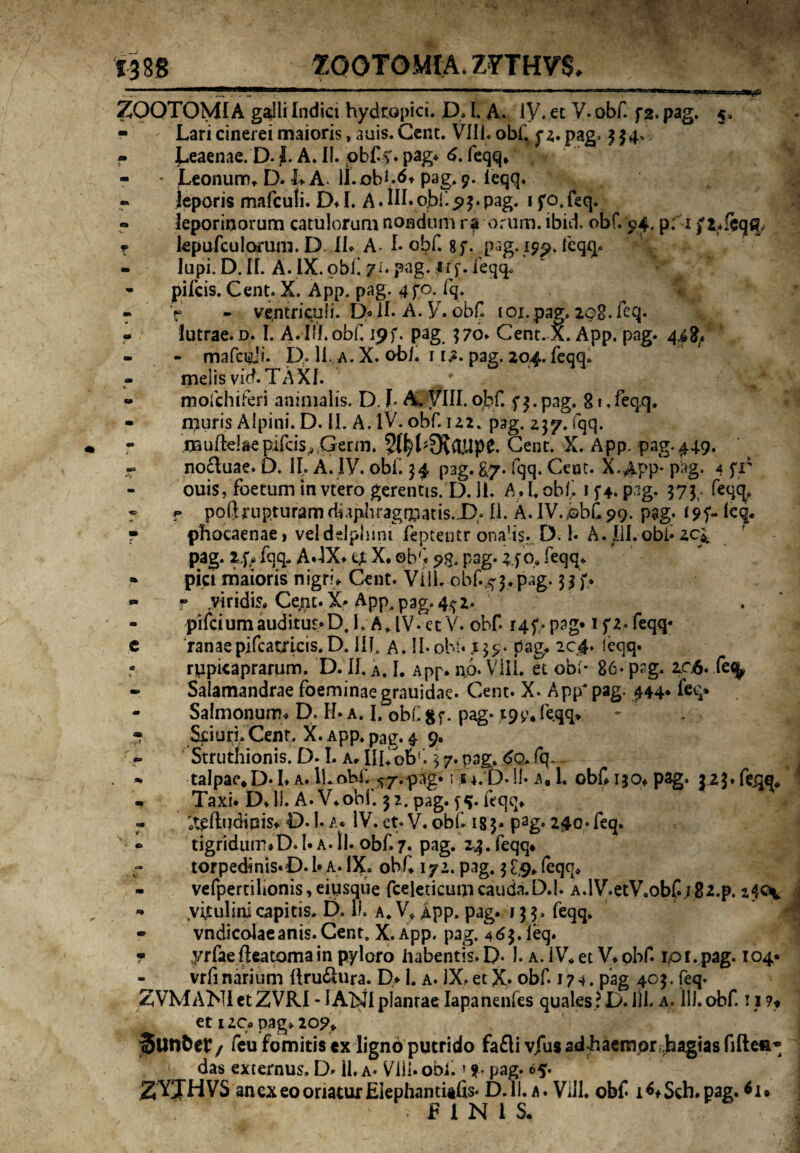 1388 ZOOTOMIA. ZYTHVS.
ZOOTOMIA galli Indici hydropici. D. I. A. IV. et V. obs. 52. pag. 5.
- Lari cinerei maioris, auis. Cent. VIII. obs. 52. pag. 334.
- Leaenae. D. I. A. II. obs. 5. pag. 6. seqq.
- Leonum. D. I. A. II. obs. 6. pag. 9. seqq.
- leporis masculi. D. I. A. III. obs. 93. pag. 150. seq.
- leporinorum catulorum nondum orum. ibid. obs. 94. p. 152. seqq.
- lepusculorum. D. II. A. I. obs. 85. pag. 199. seqq.
- lupi. D. II. A. IX. obs. 71. pag. 115. seqq.
- piscis. Cent. X. App. pag. 450. sq.
- - ventriculi. D. II. A. V. obs. 101. pag. 208. seq.
- lutrae. D. I. A. III. obs. 195. pag. 370. Cent. X. App. pag. 448.
- - masculi. D. II. A. X. obs. 112. pag. 204. seqq.
- melis vid. TAXI.
- moschiferi animalis. D. I. A. VIII. obs. 53. pag. 81. seqq.
- muris Alpini. D. II. A. IV. obs. 122. pag. 237. sqq.
- mustelae piscis, Germ. Ahl-Raupe. Cent. X. App. pag. 449.
- noctuae. D. II. A. IV. obs. 34 pag. 87. sqq. Cent. X. App. pag. 451
- ouis, foetum in vtero gerentis. D. II. A. I. obs. 154. pag. 373. seqq.
- - post rupturam diaphragmatis. D. II. A. IV. obs. 99. pag. 195. seq.
- phocaenae, vel delphini septentrionalis. D. I. A. III. obs. 20.
pag. 25. sqq. A. IX. et X. obs. 98. pag. 250. seqq.
- pici maioris nigri. Cent. VIII. obs. 53. pag. 335.
- - viridis. Cent. X. App. pag. 452.
- piscium auditus. D. I. A. IV. et V. obs. 145. pag. 152. seqq.
ranae piscatricis. D. III. A. II. obs. 139. pag. 204. seqq.
- rupicaprarum. D. II. A. I. App. no. VIII. et obs. 86. pag. 206. seq.
- Salamandrae foeminae grauidae. Cent. X. App. pag. 444. seq.
- Salmonum. D. II. A. I. obs. 85. pag. 199. seqq.
- Sciuri. Cent. X. App. pag. 4 9.
- Struthionis. D. I. A. III. obs. 37. pag. 60. sq.
- talpae. D. I. A. II. obs. 57. pag. 114. D. II. A. I. obs. 130. pag. 323. seqq.
- Taxi. D. II. A. V. obs. 32. pag. 55. seqq.
- testudinis. D. I. A. IV. et V. obs. 183. pag. 240. seq.
- tigridum. D. I. A. II. obs. 7. pag. 23. seqq.
- torpedinis. D. I. A. IX. obs. 172. pag. 389. seqq.
- vespertilionis, eiusque sceleticum cauda. D. I. A. IV. et V. obs. 182. p. 240.
- vitulini capitis. D. II. A. V. App. pag. 133. seqq.
- vndicolae anis. Cent. X. App. pag. 463. seq.
- vrsae steatoma in pyloro habentis. D. I. A. IV. et V. obs. 101. pag. 104.
- vrsinarium structura. D. I. A. IX. et X. obs. 174. pag 403. seq.
ZVMANI et ZVRI - IANI plantae Iapanenses quales? D. III. A. III. obs. 119.
et 120. pag. 209.
Zunder, seu fomitis ex ligno putrido facti vsus ad haemorrhagias sisten-
das externus. D. II. A. VIII. obs. 19. pag. 65.
ZYTHVS an ex eo oriatur Elephantiasis. D. II. A. VIII. obs. 16. Sch. pag. 61.
FINIS.